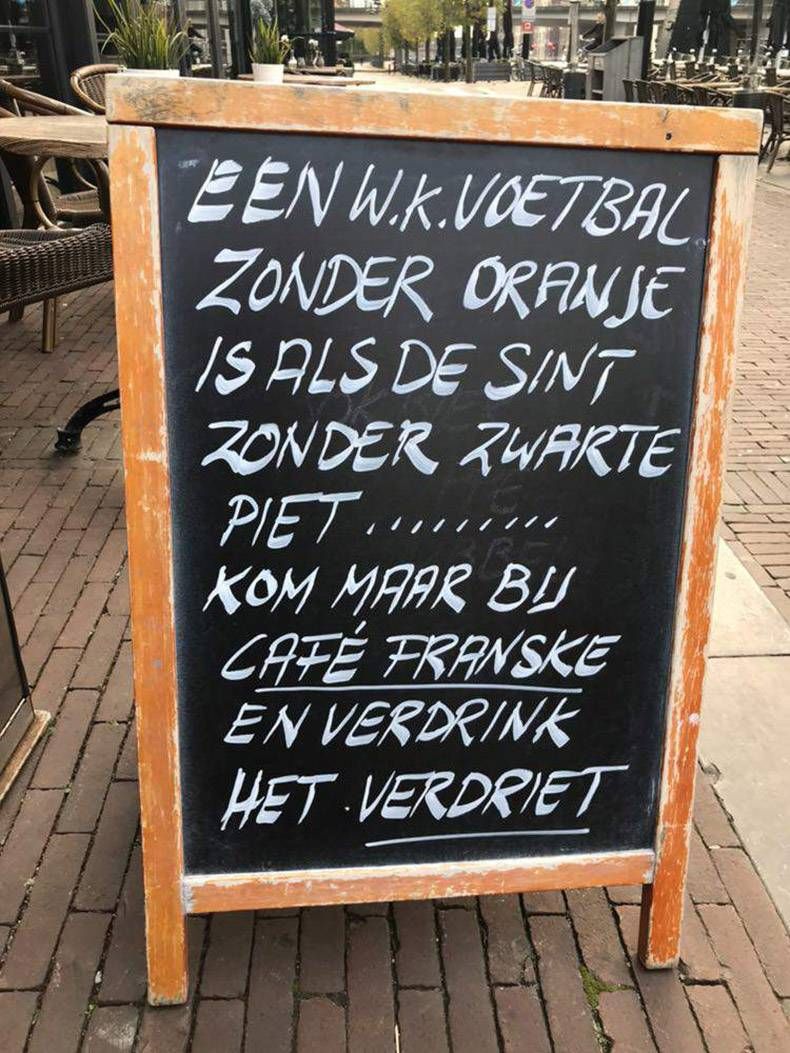 EEN W.K. VOETBAL
ZONDER ORANJE
IS ALS DE SINT
ZONDER ZWARTE
PIET..........
KOM MAAR BIJ
CAFÉ FRANSKE
EN VERDRINK
HET VERDRIET